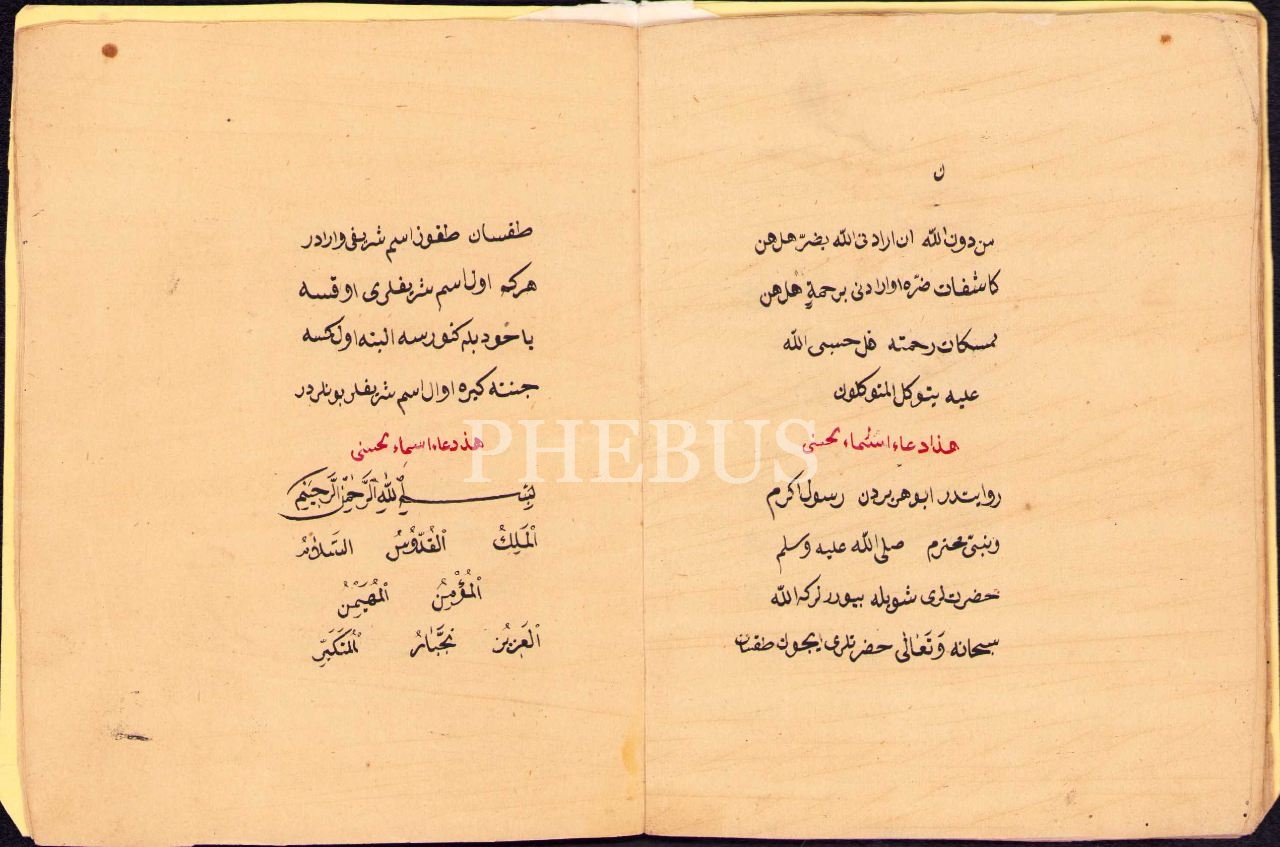 ن
من دون الله ان ارادنى الله بضرّ هل هن
كاشفات ضرّه اوارادنى برحمةٍ هل هن
ممسكات رحمته قل حسبى الله
عليه يتوكل المتوكلون
هذا دعاء اسماء لحسنى
روايتدر ابو هريره دن رسول اكرم
ونبىّ محترم صلى الله عليه وسلم
حضرتلرى شويله بيوررلركه الله
سبحانه وَتَعَالٰى حضرتلرى ايچون طقسان
طقسان طقوز اسم شريفى واردر
هركه اول اسم شريفلرى اوقسه
ياخود بله كتورسه البته اول كسه
جنته كيره اوال اسم شريفلر بونلردر
هذ دعاء اسماء لحسنى
بِسْــــــمِ اللهِ الرَّحْمٰنِ الرَّحِيمِ
اَلْمَلِكُ اَلْقُدُّوسُ السَّلاَمُ
اَلْمُؤْمِنُ اَلْمُهَيْمِنُ
اَلْعَزِيزُ لْجَبَّارُ اَلْمُتَكَبِّرُ
PHEBUS